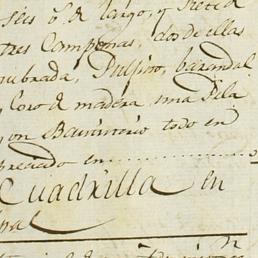 seis v.s de largo, y siete d
tres Campanas, dos de ellas
quebrada, Pulpito, barandal
y Coro de madera una Pila
con Bautisterio todo en
preciado en
Cuadrilla en
pal